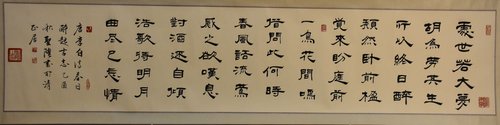 處世若大夢
胡為勞其生
所以終日醉
頹然臥前楹
覺來盼庭前
一鳥花間鳴
借問此何時
春風語流鶯
感之欲嘆息
對酒還自傾
浩歌待明月
曲盡已忘情
唐李白詩春日
醉起言志乙酉
秋書於